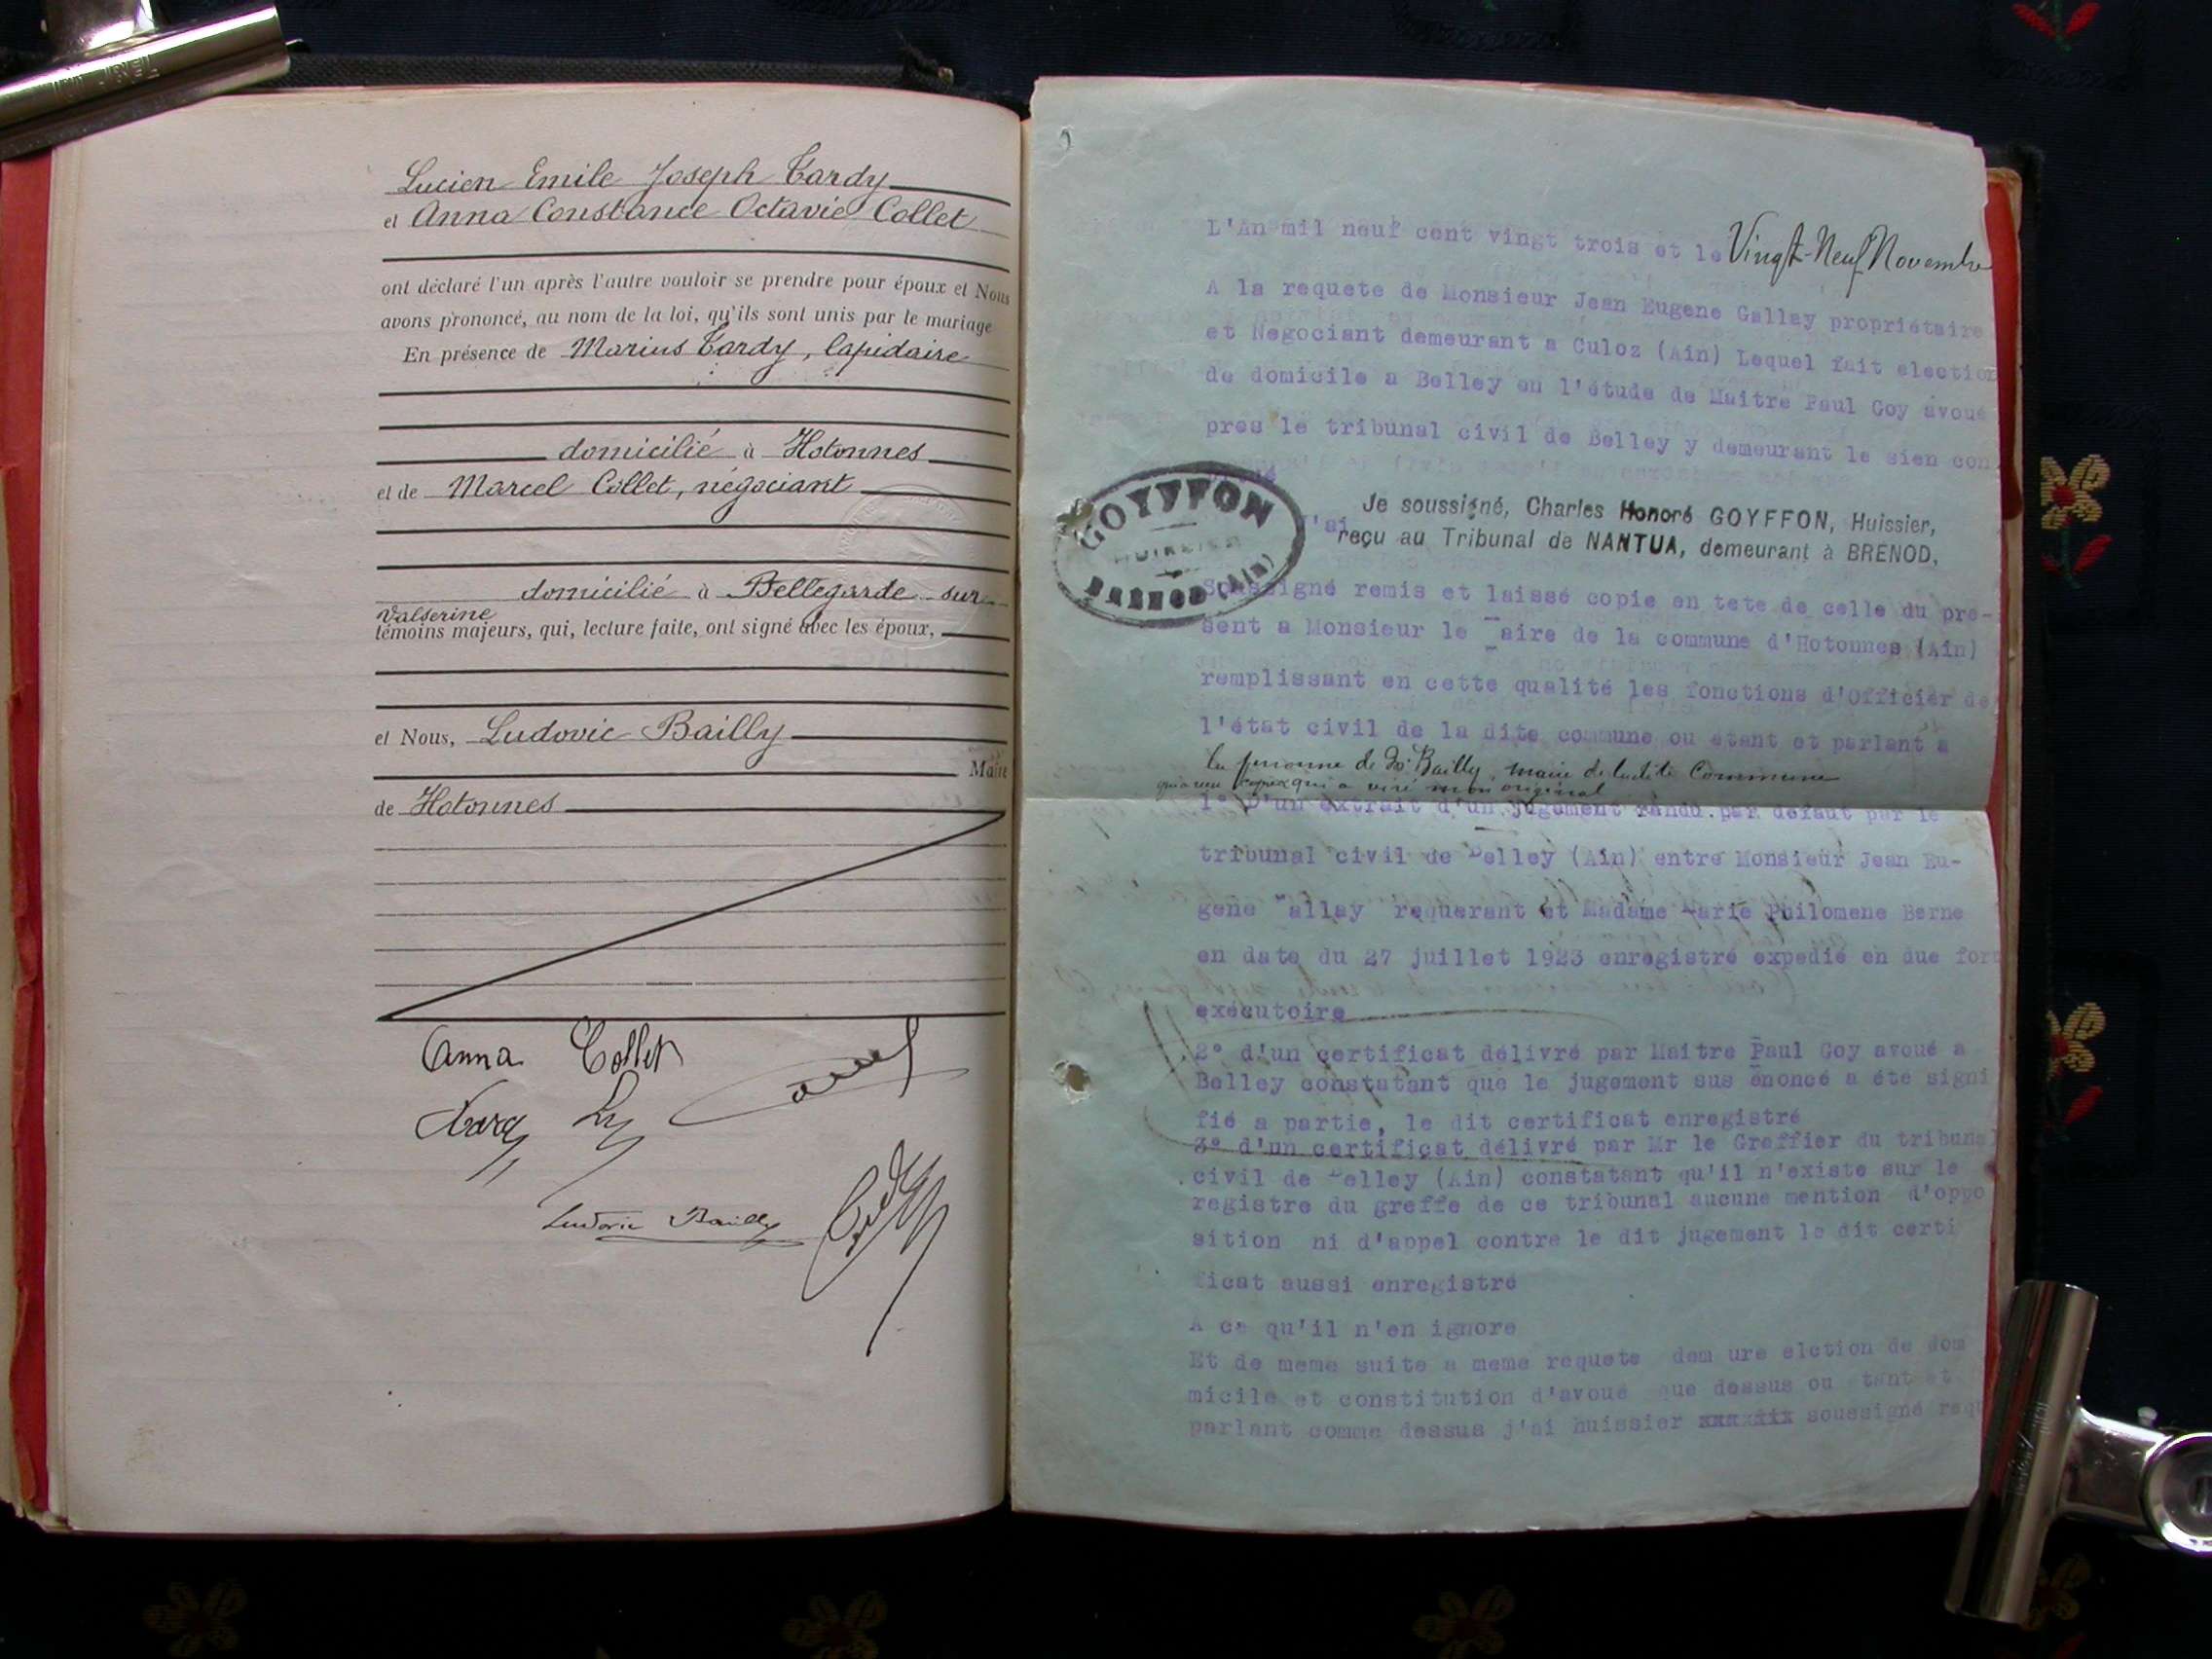 Lucien Emile Joseph Tardy
et Anna Constance Octavie Collet
ont déclaré l'un après l'autre vouloir se prendre pour époux et Nous
avons prononcé, au nom de la loi, qu'ils sont unis par le mariage
En présence de Marius Tardy, lapidaire
domicilié à Hotonnes
et de Marcel Collet, négociant
domicilié à Bellegarde sur
Valserine
témoins majeurs, qui, lecture faite, ont signé avec les époux,
et Nous, Ludovic Bailly
Maire
de Hotonnes
Anna Collet
Ludovic Bailly
L'An mil neuf cent vingt trois et le Vingt-Neuf Novembre
A la requete de Monsieur Jean Eugene Gallay propriétaire
et Negociant demeurant a Culoz (Ain) Lequel fait election
de domicile a Belley en l'étude de Maitre Paul Goy avoué
pres le tribunal civil de Belley y demeurant le sien con
GOYFFON
HUISSIER
BRENOD (Ain)
J'ai
Je soussigné, Charles Honoré GOYFFON, Huissier,
reçu au Tribunal de NANTUA, demeurant à BRENOD,
Soussigné remis et laissé copie en tete de celle du pre-
sent a Monsieur le aire de la commune d'Hotonnes (Ain)
remplissant en cette qualité les fonctions d'Officier de
l'état civil de la dite commune ou étant et parlant a
la personne de Mr Bailly, maire de ladite Commune
qui a reçu copie et qui a visé mon original
1° D'un extrait d'un jugement rendu par defaut par le
tribunal civil de Belley (Ain) entre Monsieur Jean Eu-
gene Gallay requerant et Madame Marie Philomene Berne
en date du 27 juillet 1923 enregistré expedié en due form
exécutoire
2° d'un certificat délivré par Maitre Paul Goy avoué a
Belley constatant que le jugement sus énoncé a éte signi
fié a partie, le dit certificat enregistré
3° d'un certificat délivré par Mr le Greffier du tribunal
civil de Belley (Ain) constatant qu'il n'existe sur le
registre du greffe de ce tribunal aucune mention d'oppo
sition ni d'appel contre le dit jugement le dit certi
ficat aussi enregistré
A ce qu'il n'en ignore
Et de meme suite a meme requete dem ure elction de dom
micile et constitution d'avoué que dessus ou tant et
parlant comme dessus j'ai huissier soussigné requ